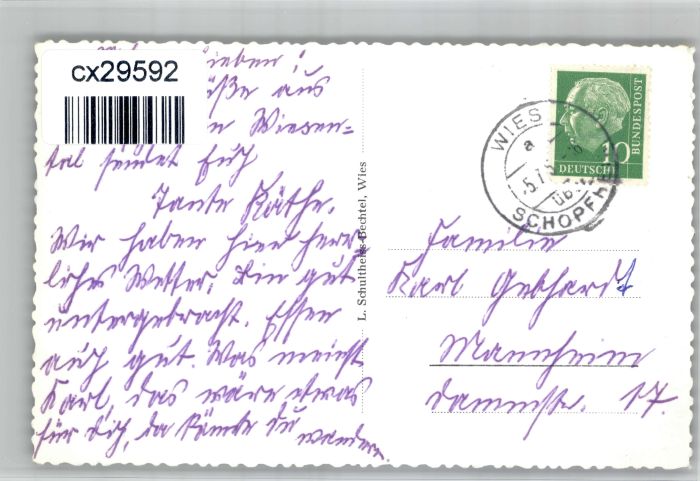 cx29592
ieben!
üße aus
n Wiesen=
tal sendet Euch
Tante Käthe.
Wir haben hier herr
liches Wetter, bin gut
untergebracht. Essen
auch gut. Was meinst
Karl, das wäre etwas
für Dich, da könnte Du
wandern
L. Schultheiss-Bechtel, Wies
WIES
a
-5.7.5
üb.
SCHOPFH
10
BUNDESPOST
DEUTSCHE
Familie
Karl Gebhardt
Mannheim
Dammstr. 17.